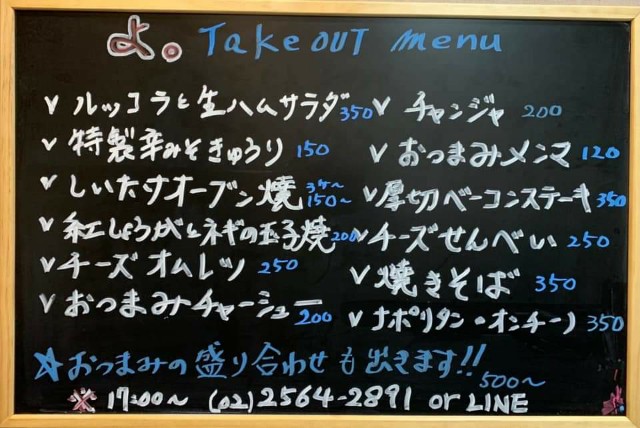 よ。Take OUT menu
✓ ルッコラと生ハムサラダ 350
✓ 特製辛みそきゅうり 150
✓ しいたけオーブン焼 3ケ~ 150~
✓ 紅しょうがとネギの玉子焼 200
✓ チーズオムレツ 250
✓ おつまみチャーシュー 200
✓ チャンジャ 200
✓ おつまみメンマ 120
✓ 厚切ベーコンステーキ 350
✓ チーズせんべい 250
✓ 焼きそば 350
✓ ナポリタン・オンチーノ 350
☆おつまみの盛り合わせも出きます!! 500~
※ 17:00~ (02)2564-2891 or LINE